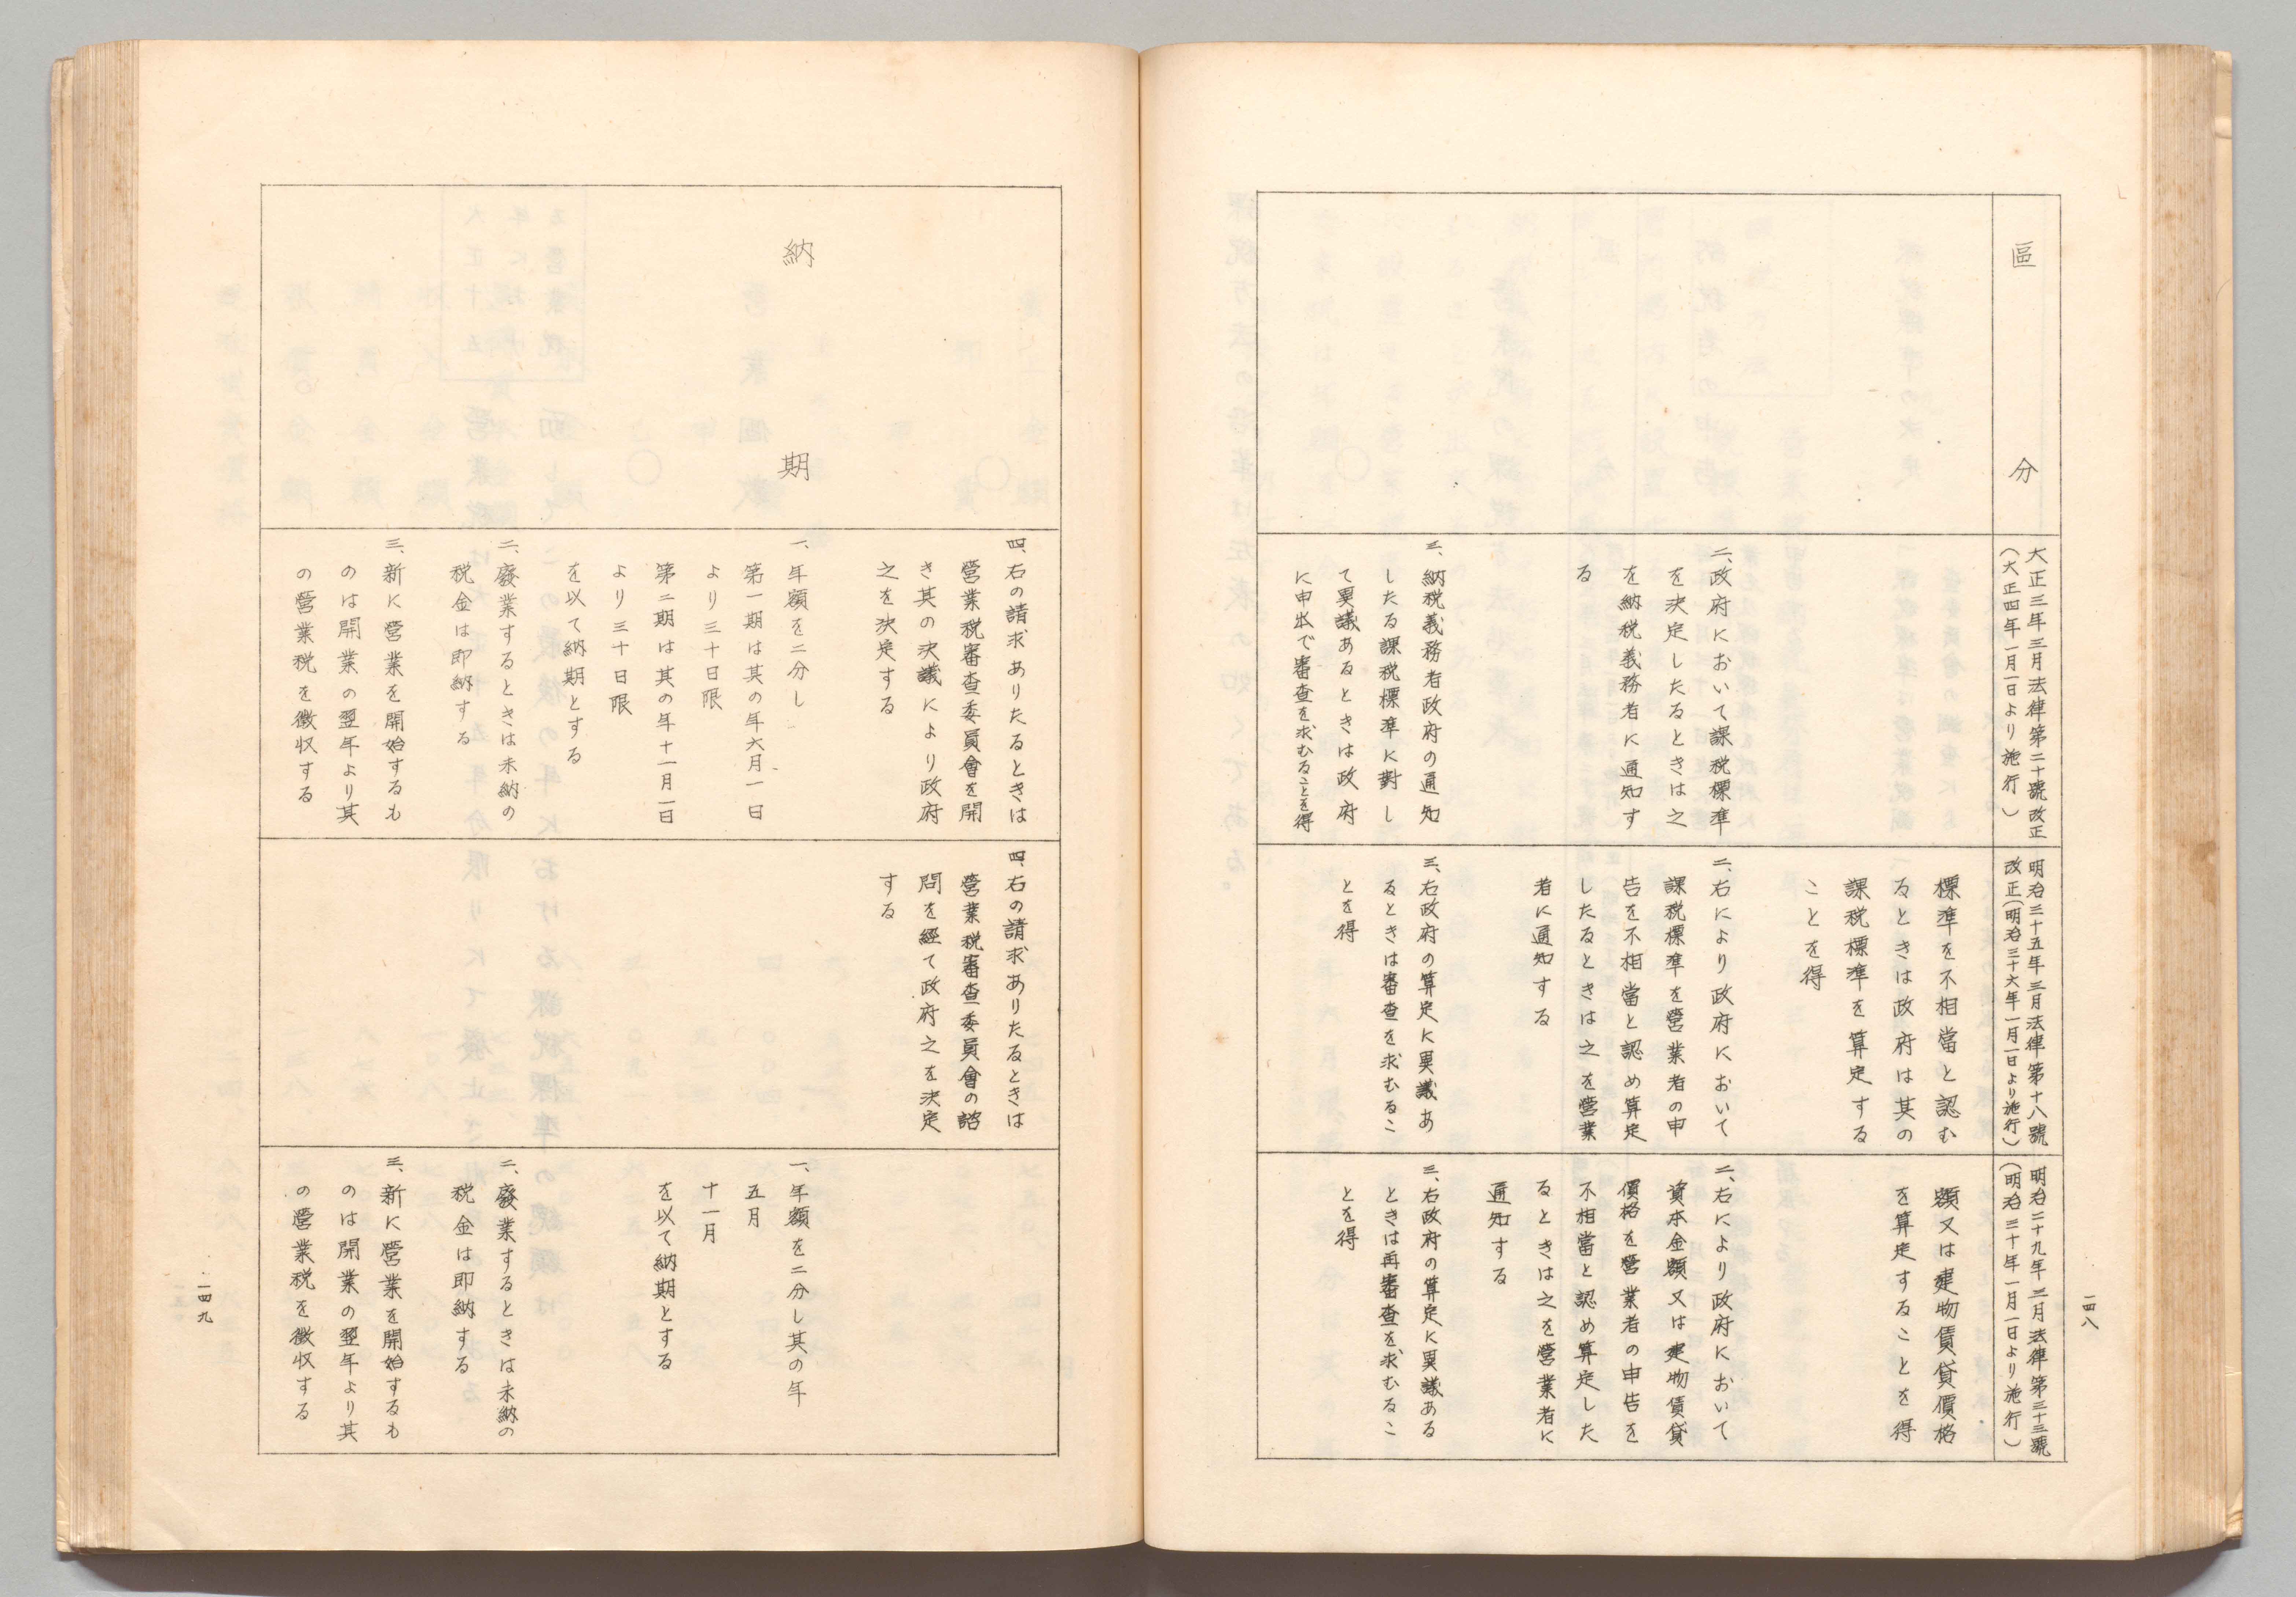 一四八
區分
大正三年三月法律第二十號改正
(大正四年一月一日より施行)
明治三十五年三月法律第十八號
改正(明治三十六年一月一日より施行)
明治二十九年三月法律第三十三號
(明治三十年一月一日より施行)
二、政府において課税標準
を決定したるときは之
を納税義務者に通知す
る
三、納税義務者政府の通知
したる課税標準に對し
て異議あるときは政府
に申出で審査を求むることを得
標準を不相當と認む
るときは政府は其の
課税標準を算定する
ことを得
二、右により政府において
課税標準を營業者の申
告を不相當と認め算定
したるときは之を營業
者に通知する
三、右政府の算定に異議あ
るときは審査を求むるこ
とを得
額又は建物賃貸價格
を算定することを得
二、右により政府において
資本金額又は建物賃貸
價格を營業者の申告を
不相當と認め算定した
るときは之を營業者に
通知する
三、右政府の算定に異議ある
ときは再審査を求むるこ
とを得
納期
四、右の請求ありたるときは
營業税審査委員會を開
き其の決議により政府
之を決定する
一、年額を二分し
第一期は其の年六月一日
より三十日限
第二期は其の年十一月一日
より三十日限
を以て納期とする
二、廢業するときは未納の
税金は即納する
三、新に營業を開始するも
のは開業の翌年より其
の營業税を徴収する
四、右の請求ありたるときは
營業税審査委員會の諮
問を經て政府之を決定
する
一、年額を二分し其の年
五月
十一月
を以て納期とする
二、廢業するときは未納の
税金は即納する
三、新に營業を開始するも
のは開業の翌年より其
の營業税を徴収する
一四九